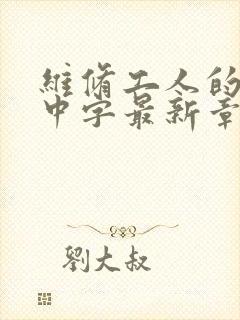 維脩工人的
中字最新章
劉大叔